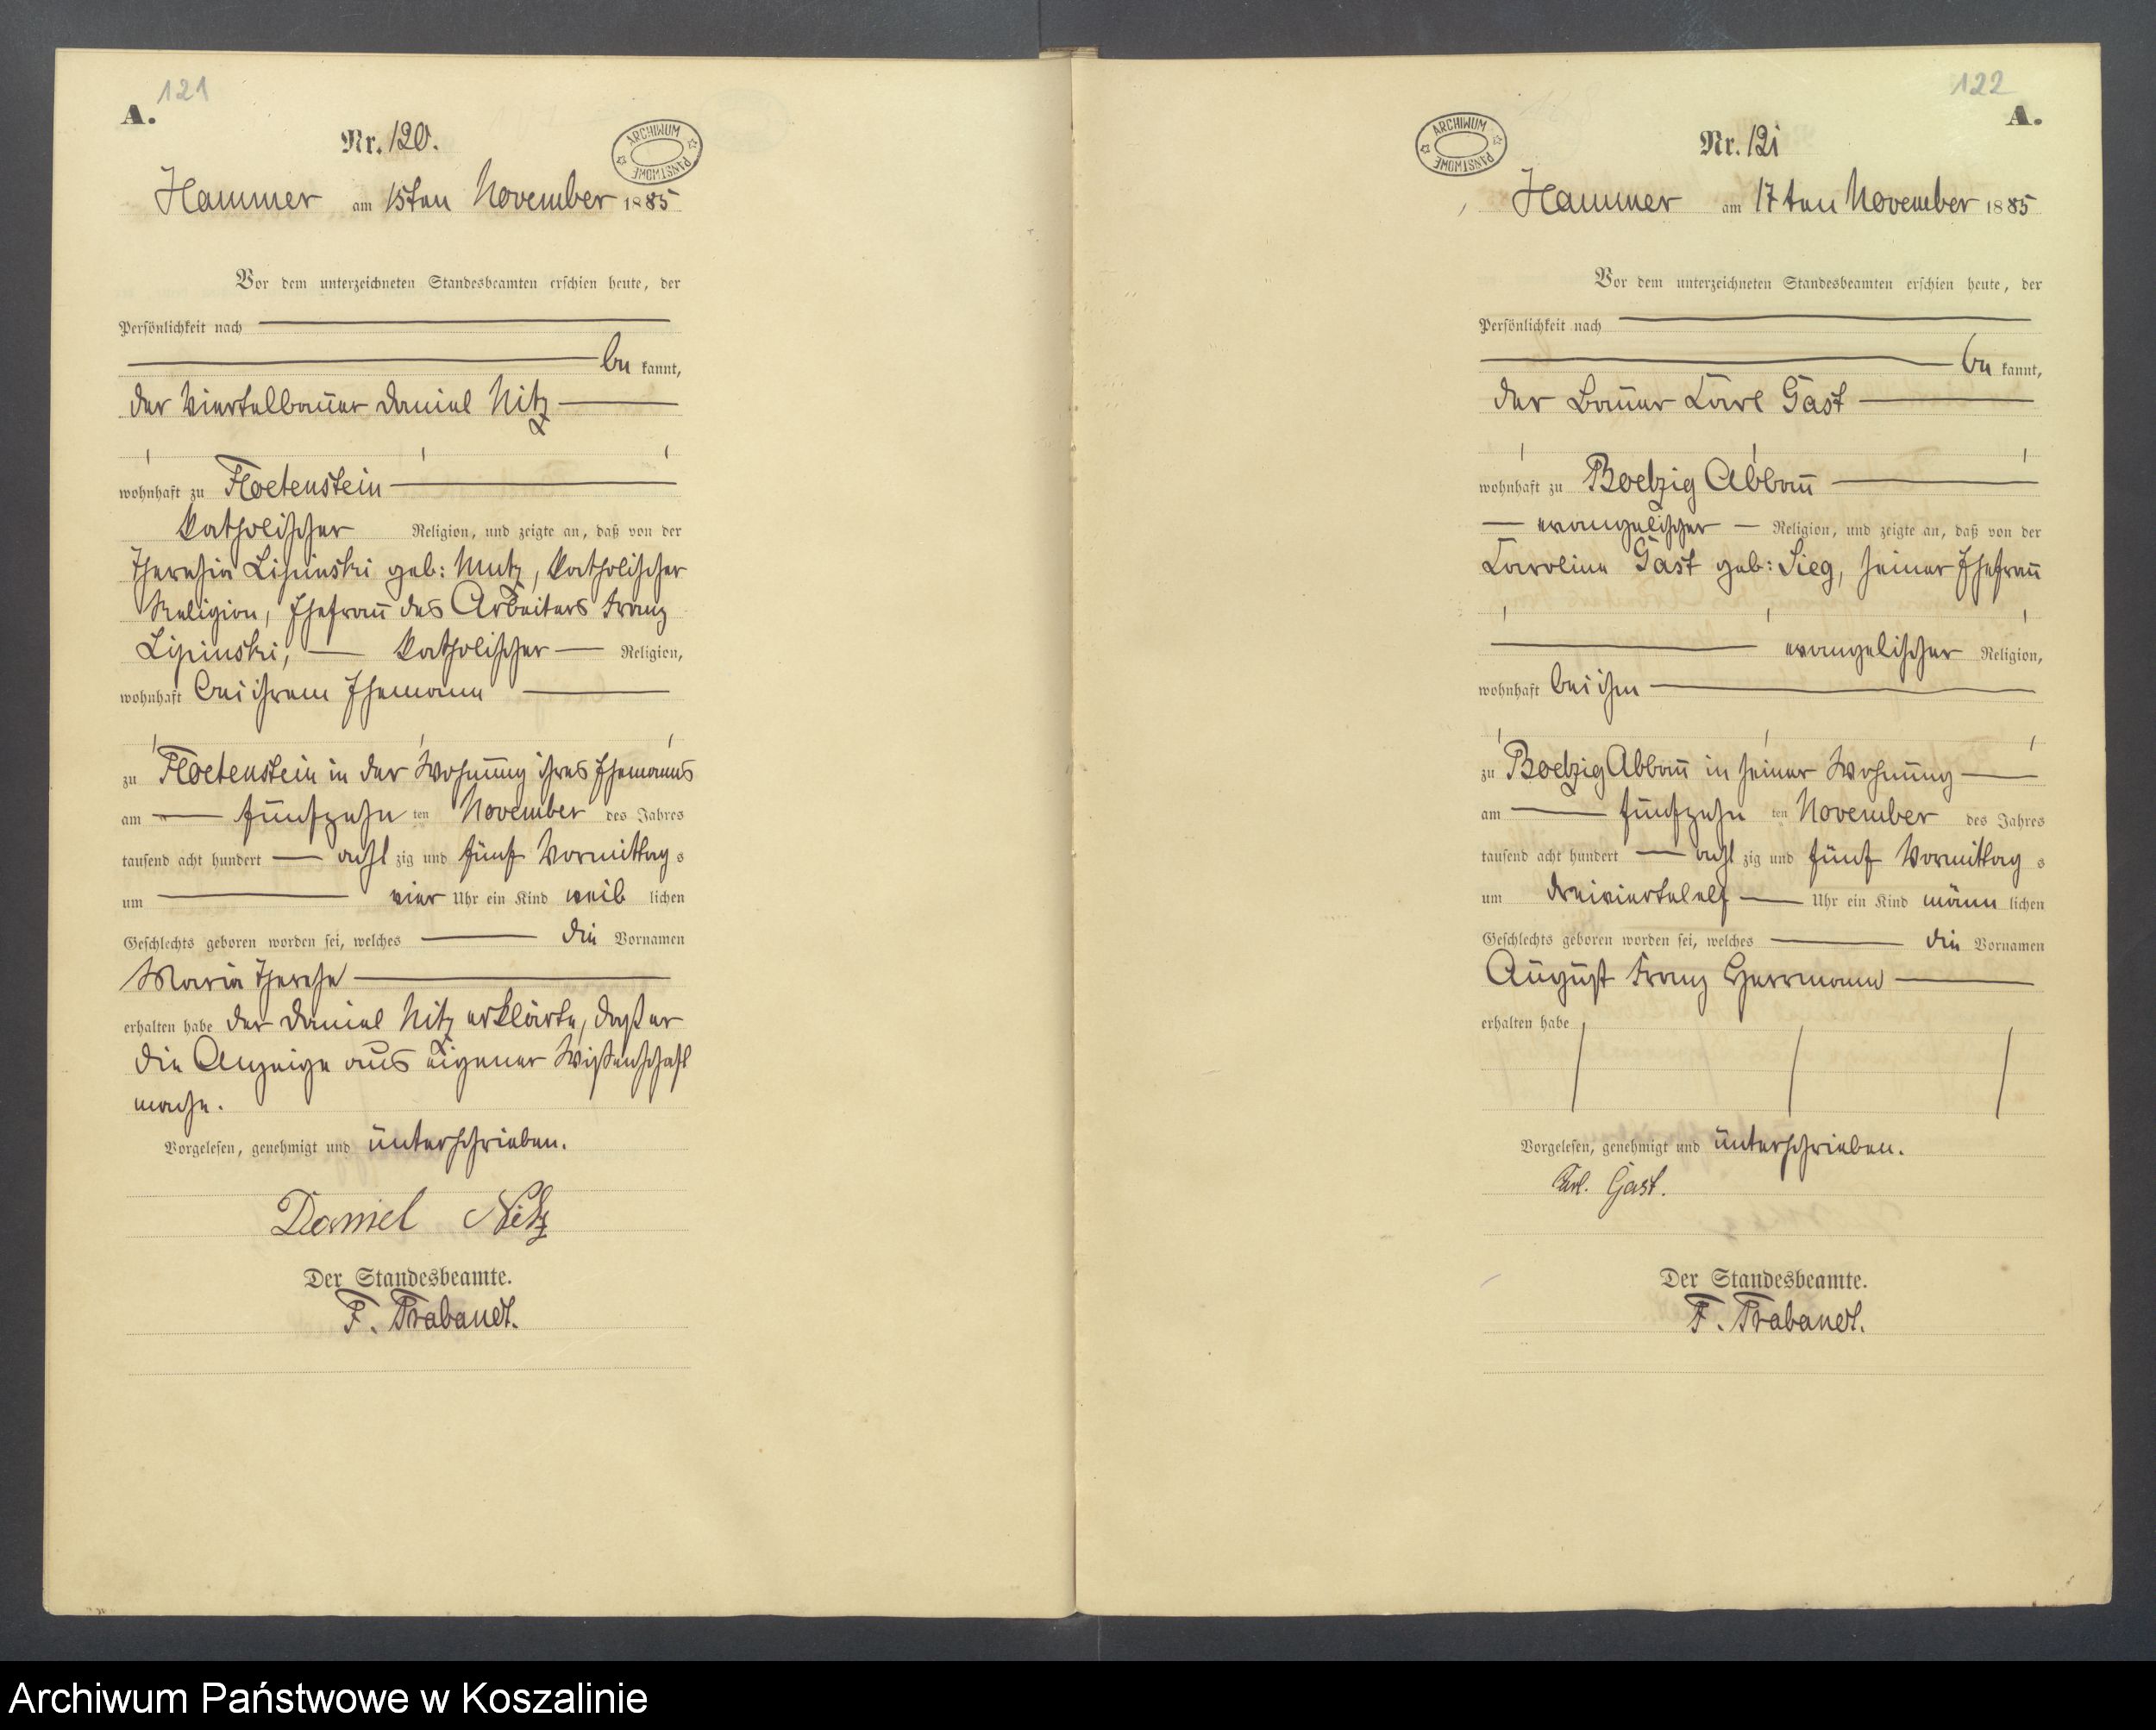 121
A.
Nr. 120.
ARCHIWUM PAŃSTWOWE
Hammer am 15ten November 1885
Vor dem unterzeichneten Standesbeamten erschien heute, der
Persönlichkeit nach
be kannt,
der Viertelbauer Daniel Nitz
wohnhaft zu Floetenstein
katholischer Religion, und zeigte an, daß von der
Theresia Lipinski geb: Mutz, katholischer
Religion, Ehefrau des Arbeiters Franz
Lipinski, katholischer Religion,
wohnhaft bei ihrem Ehemann
zu Floetenstein in der Wohnung ihres Ehemanns
am fünfzehn ten November des Jahres
tausend acht hundert acht zig und fünf Vormittag s
um vier Uhr ein Kind weib lichen
Geschlechts geboren worden sei, welches die Vornamen
Maria Therese
erhalten habe der Daniel Nitz erklärte, daß er
die Anzeige aus eigener Wißenschaft
mache.
Vorgelesen, genehmigt und unterschrieben.
Daniel Nitz
Der Standesbeamte.
F. Trabandt.
122
A.
ARCHIWUM PAŃSTWOWE
Nr. 121
Hammer am 17ten November 1885
Vor dem unterzeichneten Standesbeamten erschien heute, der
Persönlichkeit nach
be kannt,
der Bauer Carl Gast
wohnhaft zu Boelzig Abbau
evangelischer Religion, und zeigte an, daß von der
Caroline Gast geb: Sieg, seiner Ehefrau
evangelischer Religion,
wohnhaft bei ihm
zu Boelzig Abbau in seiner Wohnung
am fünfzehn ten November des Jahres
tausend acht hundert acht zig und fünf Vormittag s
um dreiviertelelf Uhr ein Kind männ lichen
Geschlechts geboren worden sei, welches die Vornamen
August Franz Herrmann
erhalten habe
Vorgelesen, genehmigt und unterschrieben.
Carl. Gast.
Der Standesbeamte.
F. Trabandt.
Archiwum Państwowe w Koszalinie